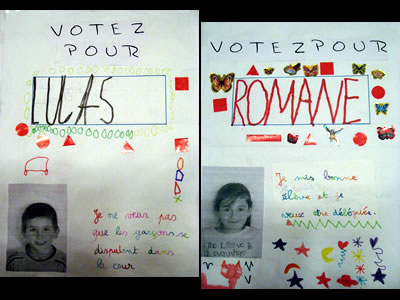 VOTEZ
POUR
LUCAS
Je ne veux pas
que les garçons se
disputent dans
la cour
VOTEZ POUR
ROMANE
Je suis bonne
élève et je
veux être déléguée.